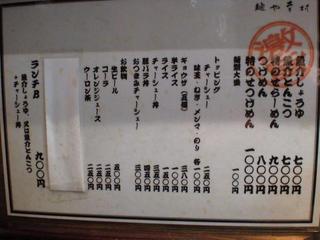 魚介しょうゆ 七〇〇円
魚介とんこつ 七〇〇円
特のせらーめん 九〇〇円
つけめん 八〇〇円
特のせつけめん 一〇〇〇円
麺類大盛 一〇〇円
トッピング
チャーシュー 二五〇円
味玉・ねぎ・メンマ・のり 各一〇〇円
ギョウザ(五個) 三八〇円
半ライス 一〇〇円
ライス 一五〇円
チャーシュー丼 三五〇円
豚バラ丼 四五〇円
おつまみチャーシュー
お飲物
生ビール 五〇〇円
コーラ 二五〇円
オレンジジュース 二五〇円
ウーロン茶 二五〇円
ランチB
魚介しょうゆ 又は魚介とんこつ
+チャーシュー丼
九〇〇円